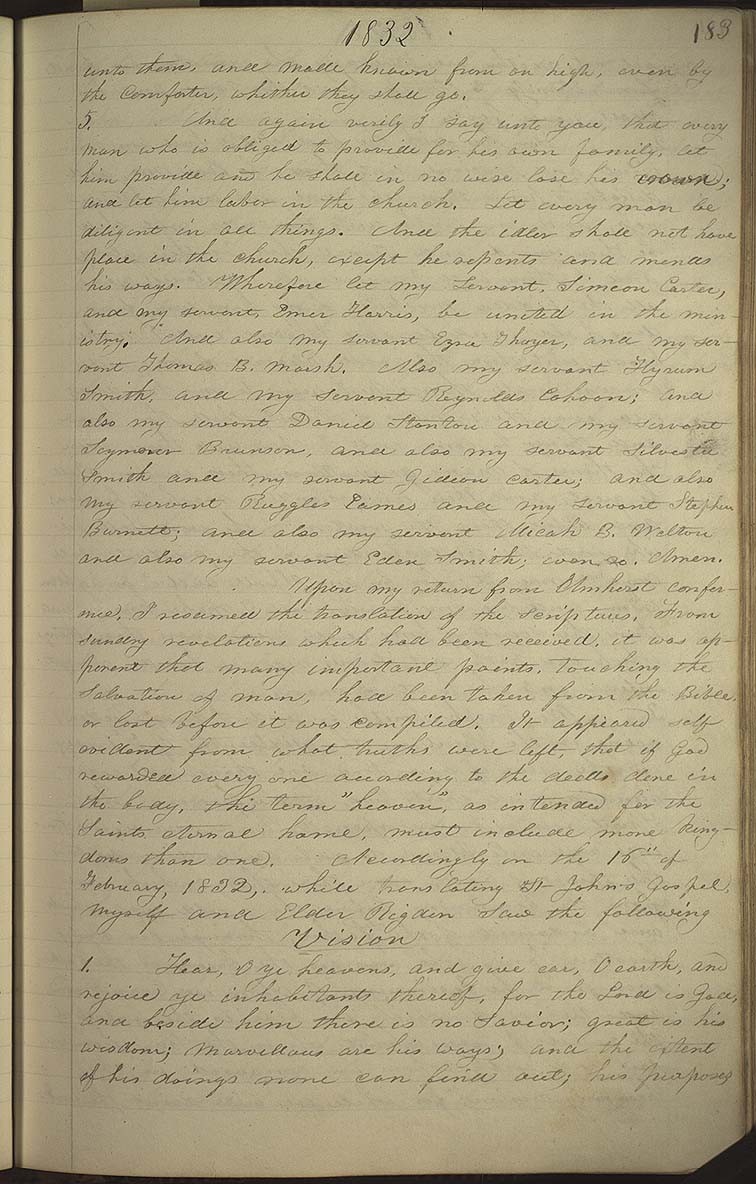 1832. 183
unto them, and made known from on high, even by
the Comforter, whither they shall go.
5. And again verily I say unto you, that every
man who is obliged to provide for his own family, let
him provide and he shall in no wise lose his crown;
and let him labor in the church. Let every man be
diligent in all things. And the idler shall not have
place in the church, except he repents and mends
his ways. Wherefore let my Servant, Simeon Carter,
and my servant, Emer Harris, be united in the min-
istry. And also my servant Ezra Thayer, and my ser-
vant Thomas B. Marsh. Also my servant Hyrum
Smith, and my servant Reynolds Cahoon; and
also my servant Daniel Stanton and my servant
Seymour Brunson, and also my servant Silvester
Smith and my servant Gideon Carter; and also
my servant Ruggles Eames and my servant Stephen
Burnett; and also my servant Micah B. Welton
and also my servant Eden Smith; even so. Amen.
Upon my return from Amherst confer-
ence, I resumed the translation of the scriptures. From
sundry revelations which had been received, it was ap-
parent that many important points, touching the
Salvation of man, had been taken from the Bible,
or lost before it was compiled. It appeared self
evident from what truths were left, that if God
rewarded every one according to the deeds done in
the body, the term "heaven", as intended for the
Saints eternal home, must include more King-
doms than one. Accordingly on the 16th of
February, 1832,. while translating St John's Gospel,
Myself and Elder Rigdon saw the following
Vision
1. Hear, O ye heavens, and give ear, O earth, and
rejoice ye inhabitants thereof, for the Lord is God,
and beside him there is no Savior; great is his
wisdom; marvellous are his ways; and the extent
of his doings none can find out; his purposes